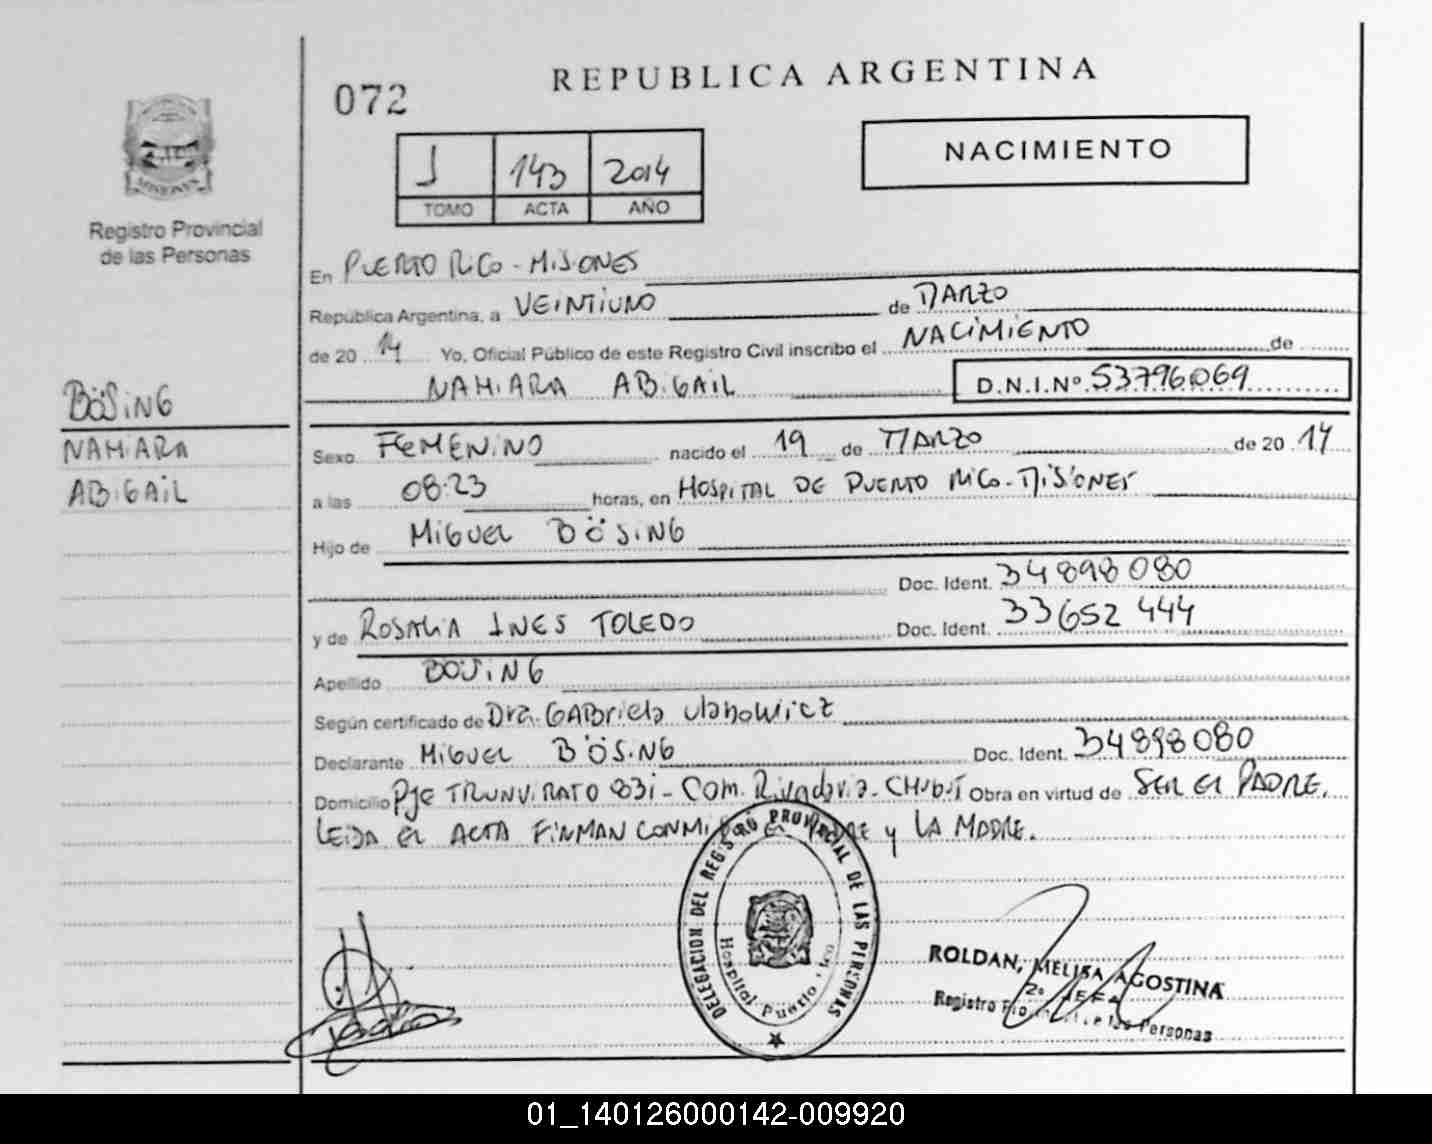 072
REPUBLICA ARGENTINA
NACIMIENTO
J 143 2014
TOMO ACTA AÑO
MISIONES
Registro Provincial
de las Personas
En PUERTO RICO - MISIONES
República Argentina, a VEINTIUNO de MARZO
de 20 14 Yo, Oficial Público de este Registro Civil inscribo el NACIMIENTO de
NAHIARA ABIGAIL D.N.I.Nº 53796069
BÖSING
NAHIARA
ABIGAIL
Sexo FEMENINO nacido el 19 de MARZO de 20 14
a las 08:23 horas, en HOSPITAL DE PUERTO RICO - MISIONES
Hijo de MIGUEL BÖSING
Doc. Ident. 34898080
y de ROSALIA INES TOLEDO Doc. Ident. 33652444
Apellido BÖSING
Según certificado de Dra. GABriela
Declarante MIGUEL BÖSING Doc. Ident. 34898080
Domicilio Pje TRIUNVIRATO 831 - COM. Rivadavia - CHUBUT Obra en virtud de SER EL PADRE.
LEIDA EL ACTA FIRMAN CONMIGO EL PADRE y LA MADRE.
DELEGACION DEL REGISTRO PROVINCIAL DE LAS PERSONAS
Hospital Puerto Rico
ROLDAN, MELISA AGOSTINA
2º JEFA
Registro Provincial de las Personas
01_140126000142-009920